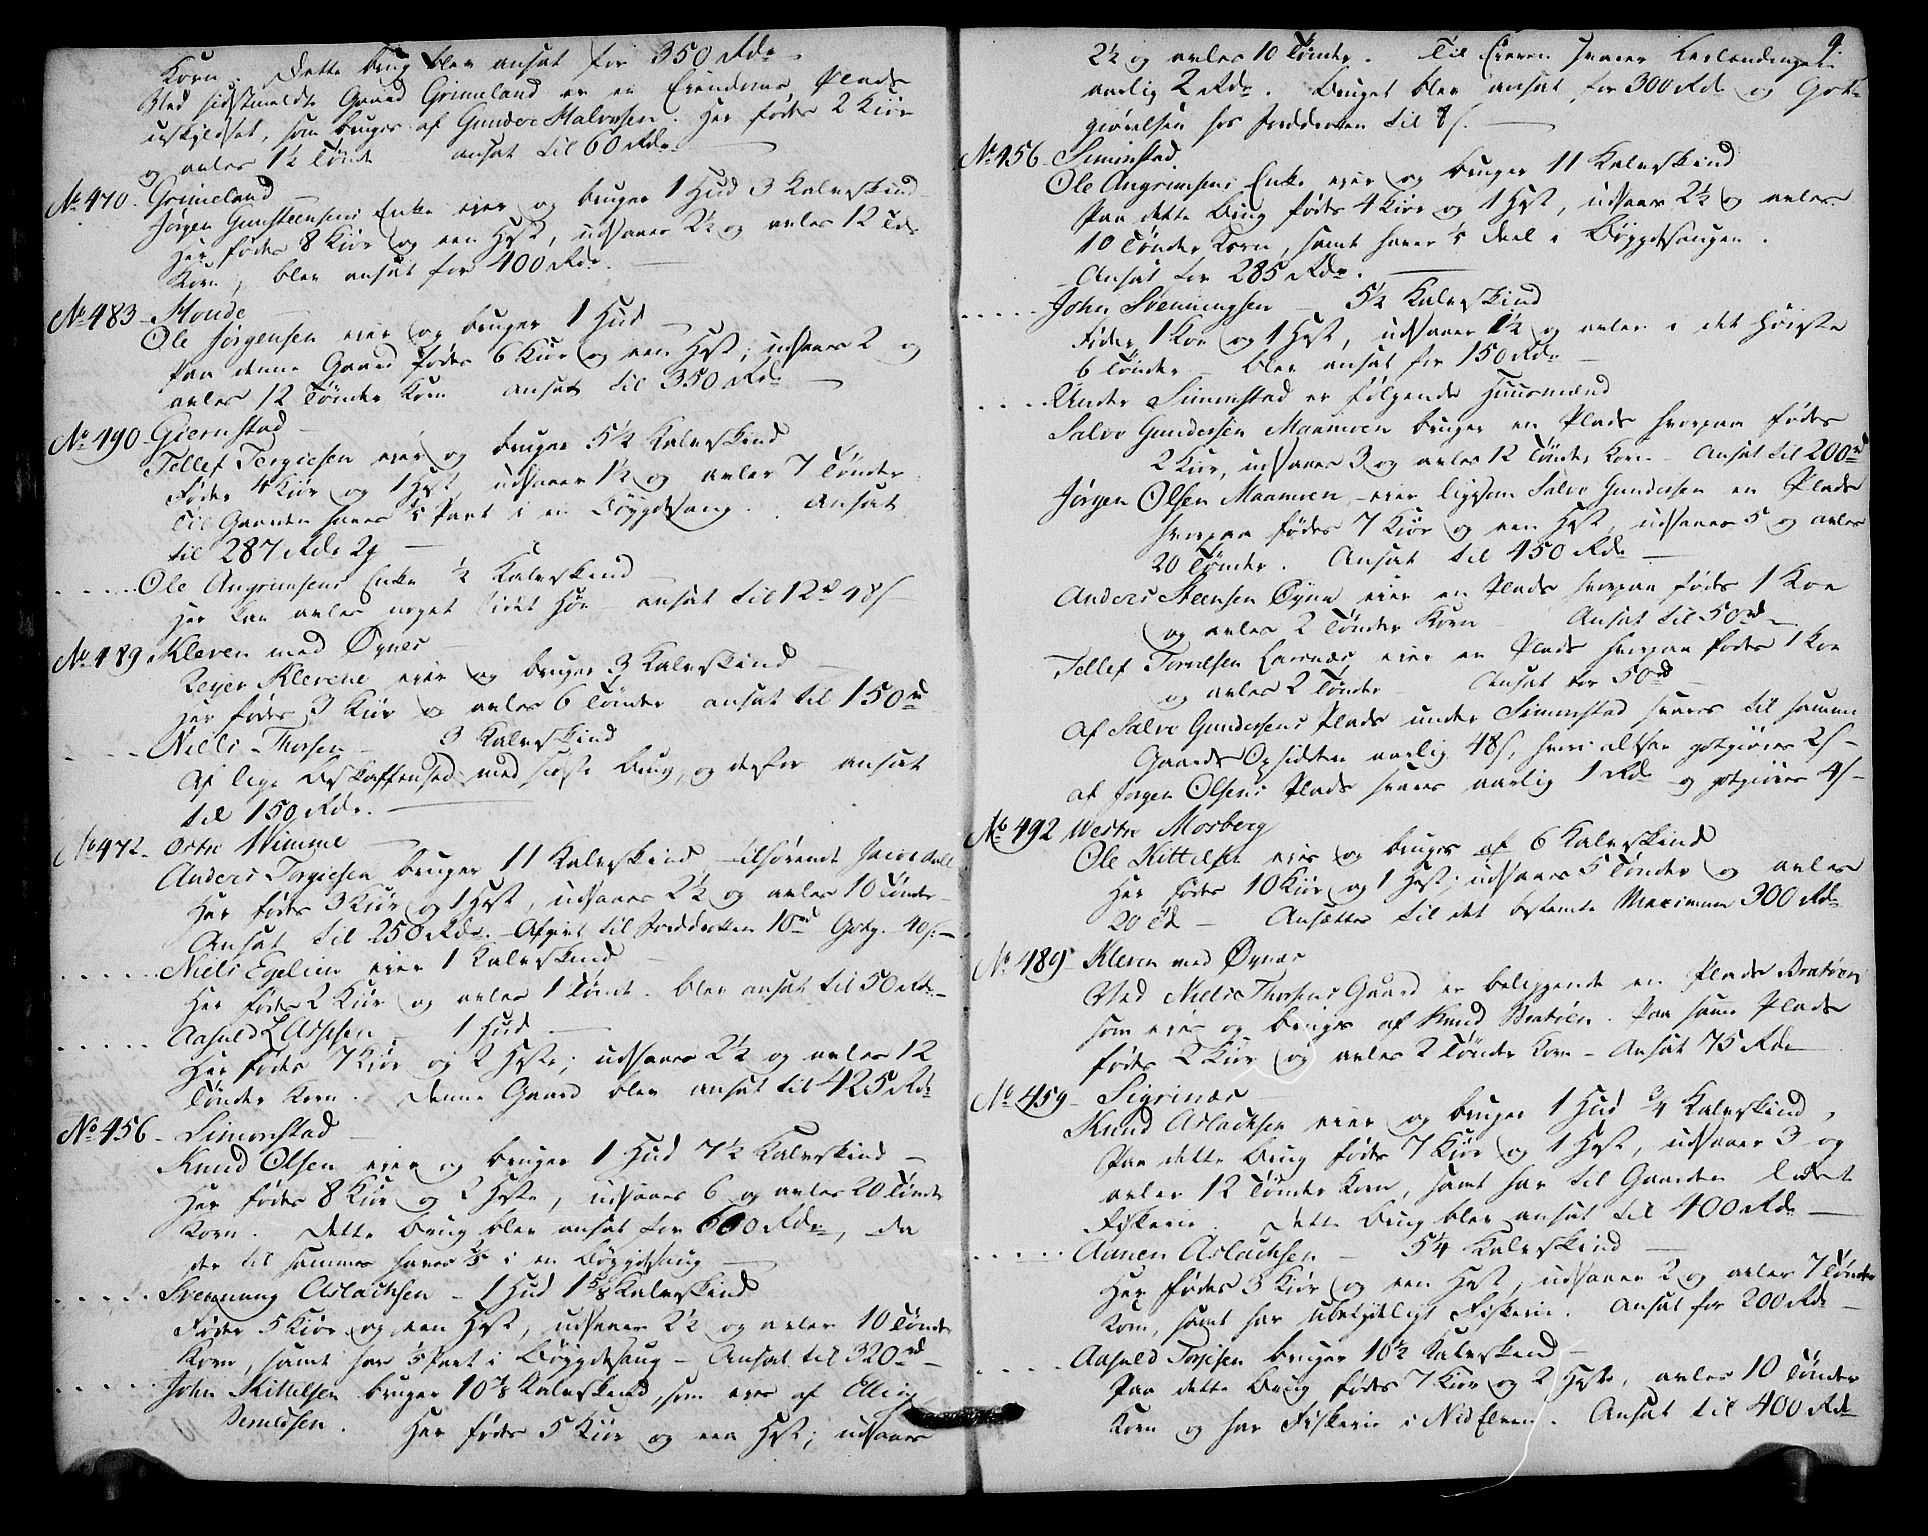 Korn. Dette brug blev ansat for 350 Rdr
Ved sidstmeldte Gaard Grimeland er en Eiendoms Plads
uskyldset, som bruges af Gunder Halvorsen. Her fødes 2 Kiør
og avles 1½ Tønde ansat til 60 Rdr.
No 470. Grimeland
Jørgen Gunsteensens Enke eier og bruger 1 Hud 3 Kalvskind
Her fødes 8 Kiør og een Hest, udsaaes 2½ og avles 12 Tdr
Korn, blev ansat for 400 Rdr.
No 483 Monde
Ole Jørgensen eier og bruger 1 Hud
Paa denne Gaard fødes 6 Kiør og een Hest; udsaaes 2 og
avles 12 Tønder Korn ansat til 350 Rdr
No 490 Giernstad
Tellef Tergiesen eier og bruger 5½ Kalvskind
Føder 4 Kiør og 1 Hest udsaaer 1½ og avler 7 Tønder.
Til Gaarden haves ⅕ Part i en Bøygdesaug. Ansat
til 287 Rdr 2
Ole Angrimsens Enke ½ Kalvskind
Her kan avles noget lidet Høe ansat til 12 rd 48 s
No 489 Kleven med Øynes
Reyer Klevene eier og bruger 3 Kalvskind
Her fødes 3 Kiør og avles 6 Tønder ansat til 150 rd
Niels Thorsen 3 Kalvskind
Af lige Beskaffenhed med sidste Brug, og derfor ansat
til 150 Rdr.
No 472. Østre Wimme
Anders Torgiesen bruger 11 Kalvskind tilhørende Jacob Aall
Her fødes 3 Kiør og 1 Hest, udsaaes 2½ og avles 10 Tønder
Ansat til 250 Rdr. Afgivt til Jorddrotten 10 rd Godtg. 40 s.
Niels Egelien eier 1 Kalvskind
Her fødes 2 Kiør og avles 1 Tønde. blev ansat til 50 Rdr
Aasuld Aslesen 1 Hud
Her fødes 7 Kiør og 2 Heste; udsaaes 2½ og avles 12
Tønder Korn. Denne Gaard blev ansat til 425 Rdr
No 456 Simonstad
Knud Olsen eier og bruger 1 Hud 7½ Kalvskind
Her fødes 8 Kiør og 2 Heste, udsaaes 6 og avles 20 Tønder
Korn. Dette brug blev ansat for 600 Rdr, da
der til sammes haves ⅖ i en Bøygdesaug
Svennung Aslachsen 1 Hud 1⅝ Kalvskind
Føder 5 Kiør og een Hest, udsaaer 2½ og avler 10 Tønder
Korn, samt har ⅕ Part i Bøygdesaug Ansat til 320 rd
John Kittelsen bruger 10⅞ Kalvskind, som eies af Elling
. Her fødes 5 Kiør og een Hest; udsaaes
9.
2½ og avles 10 Tønder. Til Eieren svarer Leilændinget
aarlig 2 Rdr. Bruget blev ansat for 300 Rdr og Godt-
giørelsen hos Jorddrotten til 8 s.
No 456 Simonstad
Ole Angrimsens Enke eier og bruger 11 Kalvskind
Paa dette Brug fødes 4 Kiør og 1 Hest, udsaaes 2½ og avles
10 Tønder Korn, samt haver ⅕ Deel i Bøygdesaugen.
Ansat for 285 Rdr.
John Svenningsen 5½ Kalvskind
Føder 1 Koe og 1 Hest, udsaaer 1½ og avler i det Høieste
6 Tønder blev ansat for 150 Rdr
Under Simonstad er følgende Huusmænd
Salve Gundersen Maamoen bruger en Plads hvorpaa fødes
2 Kiør, udsaaes 3 og avles 12 Tønder Korn Ansat til 200 rd
Jørgen Olsen Maamoen, eier ligesom Salve Gundersen en Plads
hvorpaa fødes 7 Kiør og een Hest, udsaaes 5 og avles
20 Tønder. Ansat til 450 Rdr
Anders Steensen Øyna eier en Plads hvorpaa fødes 1 Koe
og avles 2 Tønder Korn Ansat til 50 rd
Tellef eier en Plads hvorpaa fødes 1 Koe
og avles 2 Tønder Ansat for 50 rd
Af Salve Gundersens Plads under Simonstad svares til samme
Gaards Opsidder aarlig 48 s, hvori altsaa godtgiøres 2 s
af Jørgen Olsens Plads svares aarlig 1 Rdr og godtgiøres 4 s
No 492 Westre Mosberg
Ole Kittelsen eier og bruger af 6 Kalvskind
Her fødes 10 Kiør og 1 Hest; udsaaes 5 Tønder og avles
20 Td Ansættes til det bestemte Maximum 300 Rdr
No 489 Kleven med Øynæs
Ved Niels Thorsens Gaard er beliggende en Plads Bratøen
som eies og bruges af Knud Bratøen. Paa samme Plads
fødes 2 Kiør og avles 2 Tønder Korn Ansat 75 Rdr
No 459 Sigrinæs
Knud Aslachsen eier og bruger 1 Hud ¾ Kalvskind
Paa dette Brug fødes 7 Kiør og 1 Hest, udsaaes 3 og
avles 12 Tønder Korn, samt har til Gaarden lidet
Fiskerie. Dette Brug blev ansat til 400 Rdr
Aanen Aslachsen 5¼ Kalvskind
Her fødes 3 Kiør og een Hest, udsaaes 2 og avles 7 Tønder
Korn, samt har ubetydeligt Fiskerie. Ansat for 200 Rdr
Aasuld Torjesen bruger 10½ Kalvskind
Paa dette Brug fødes 7 Kiør og 2 Heste, avles 10 Tønder
Korn og har Fiskerie i Nid Elven. Ansat til 400 Rdr